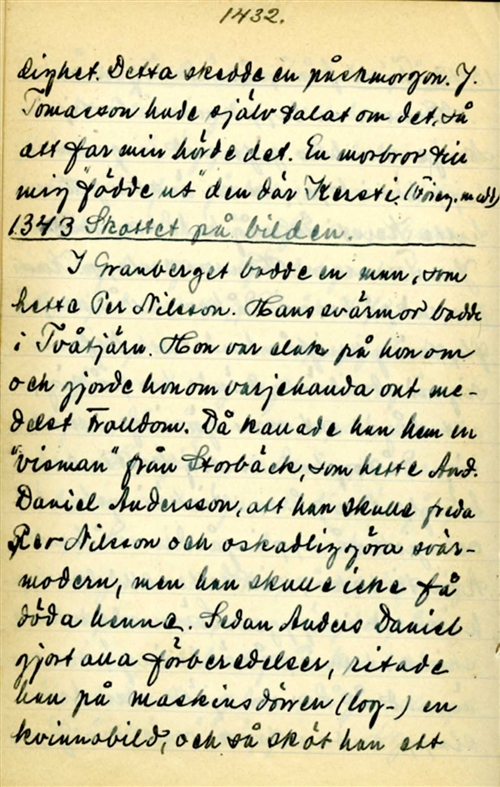 1432.
dighet. Detta skedde en påskmorgon. J.
Tomasson hade själv talat om det, så
att far min hörde det. En morbror till
mig "födde ut" den där Kersti.
1343 Skottet på bilden.
I Granberget bodde en man, som
hette Per Nilsson. Hans svärmor bodde
i Tvåtjärn. Hon var elak på honom
och gjorde honom varjehanda ont me-
delst Trolldom. Då kallade han hem en
"visman" från Storbäck, som hette And.
Daniel Andersson, att han skulle freda
Per Nilsson och oskadliggöra svär-
modern, men han skulle icke få
döda henne. Sedan Anders Daniel
gjort alla förberedelser, ritade
han på maskinsdörren (log-) en
kvinnobild, och så sköt han ett